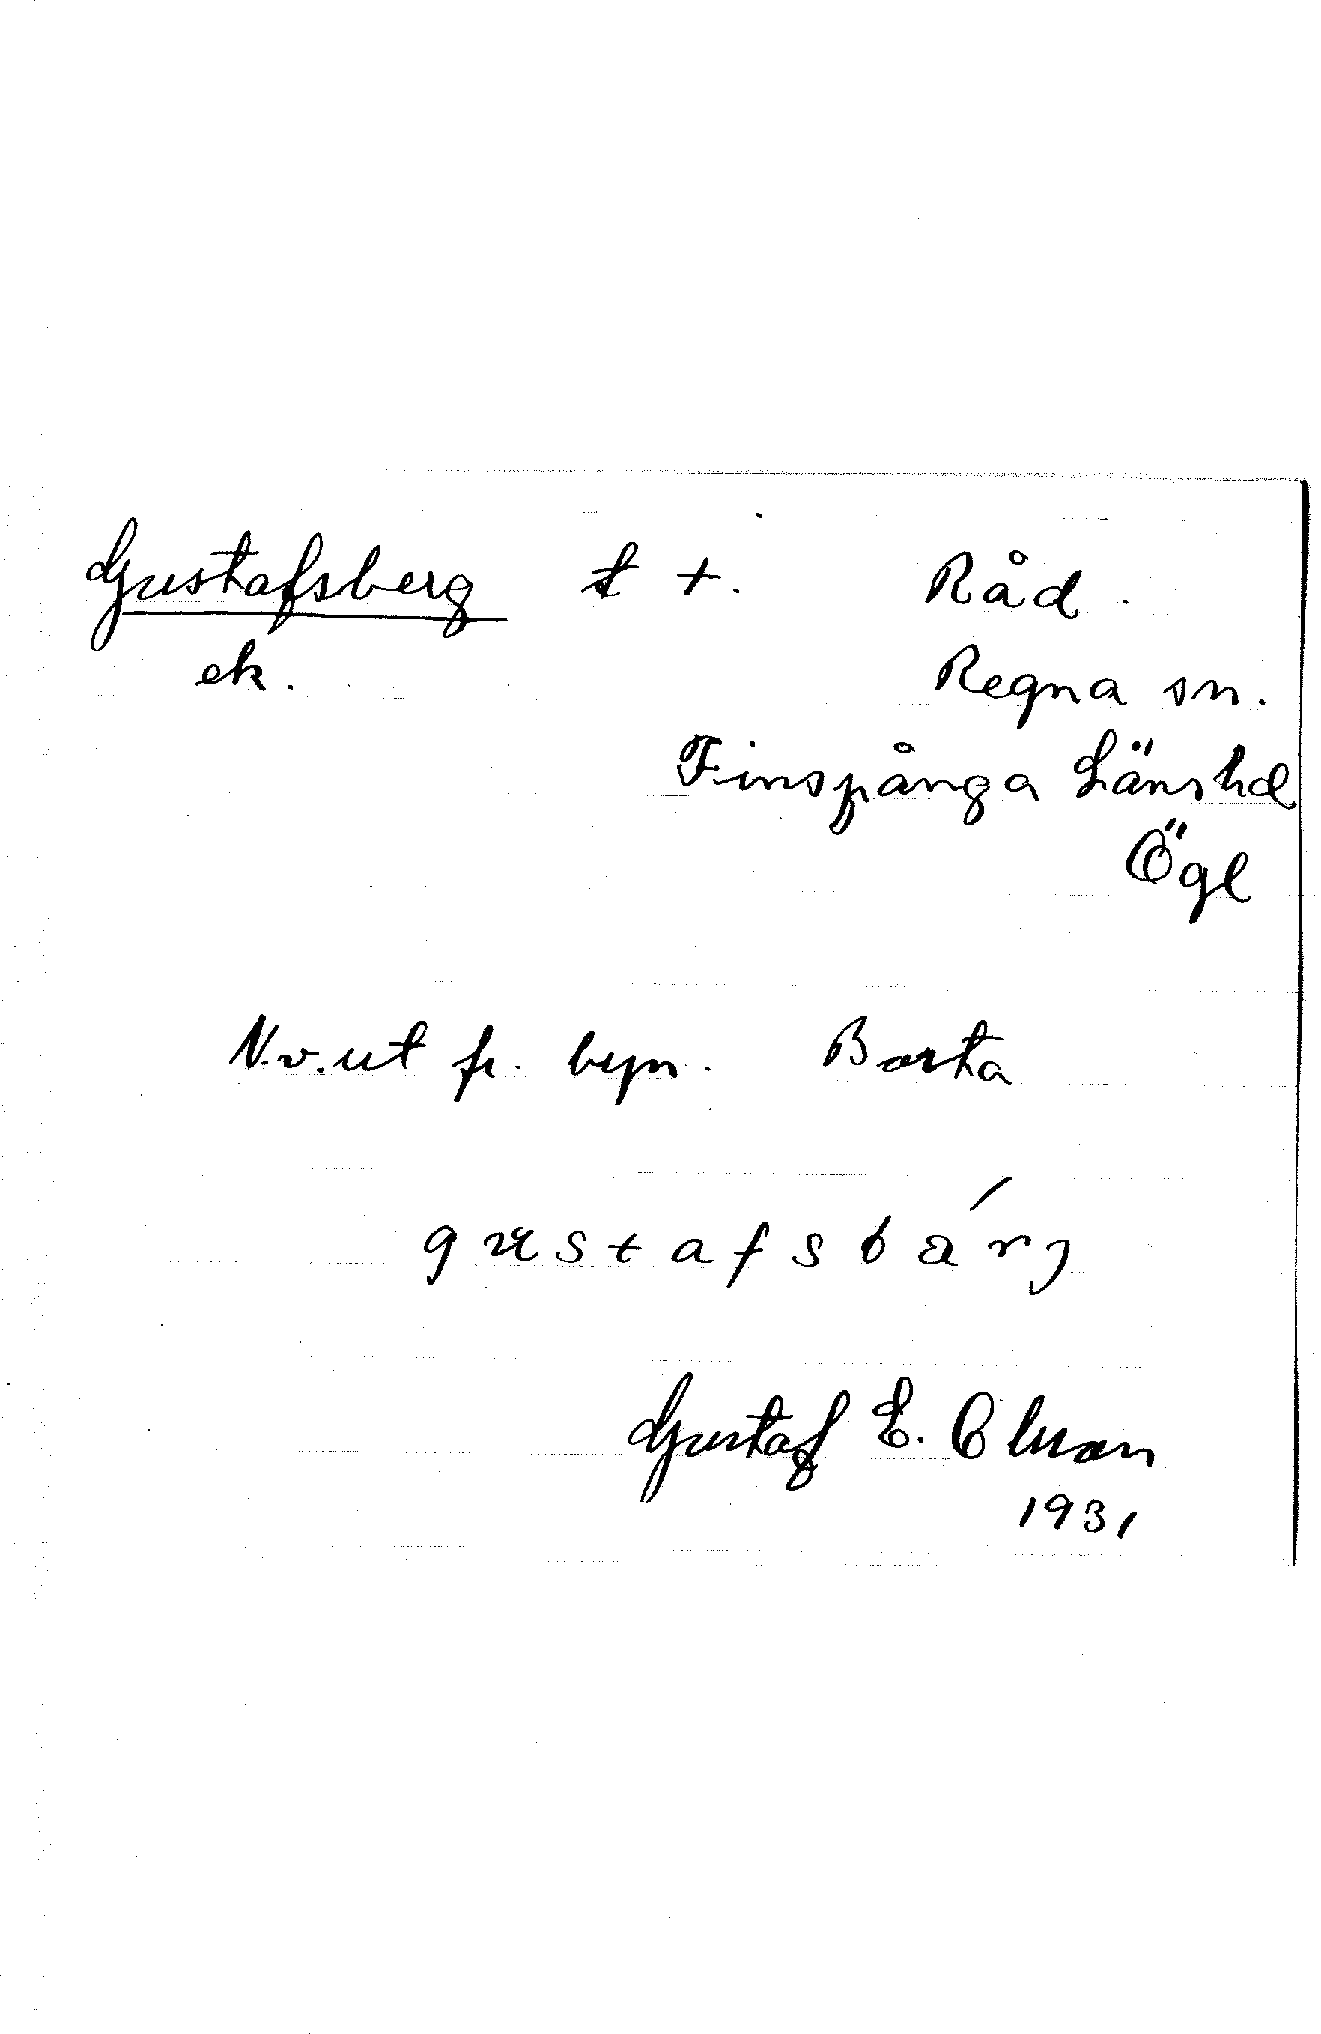 Gustafsberg t +. Råd.
ek. Regna sn.
Finspånga Länshd
Ögl
N.v. ut fr. byn. Borta
gustafsbárj
Gustaf E.
1931